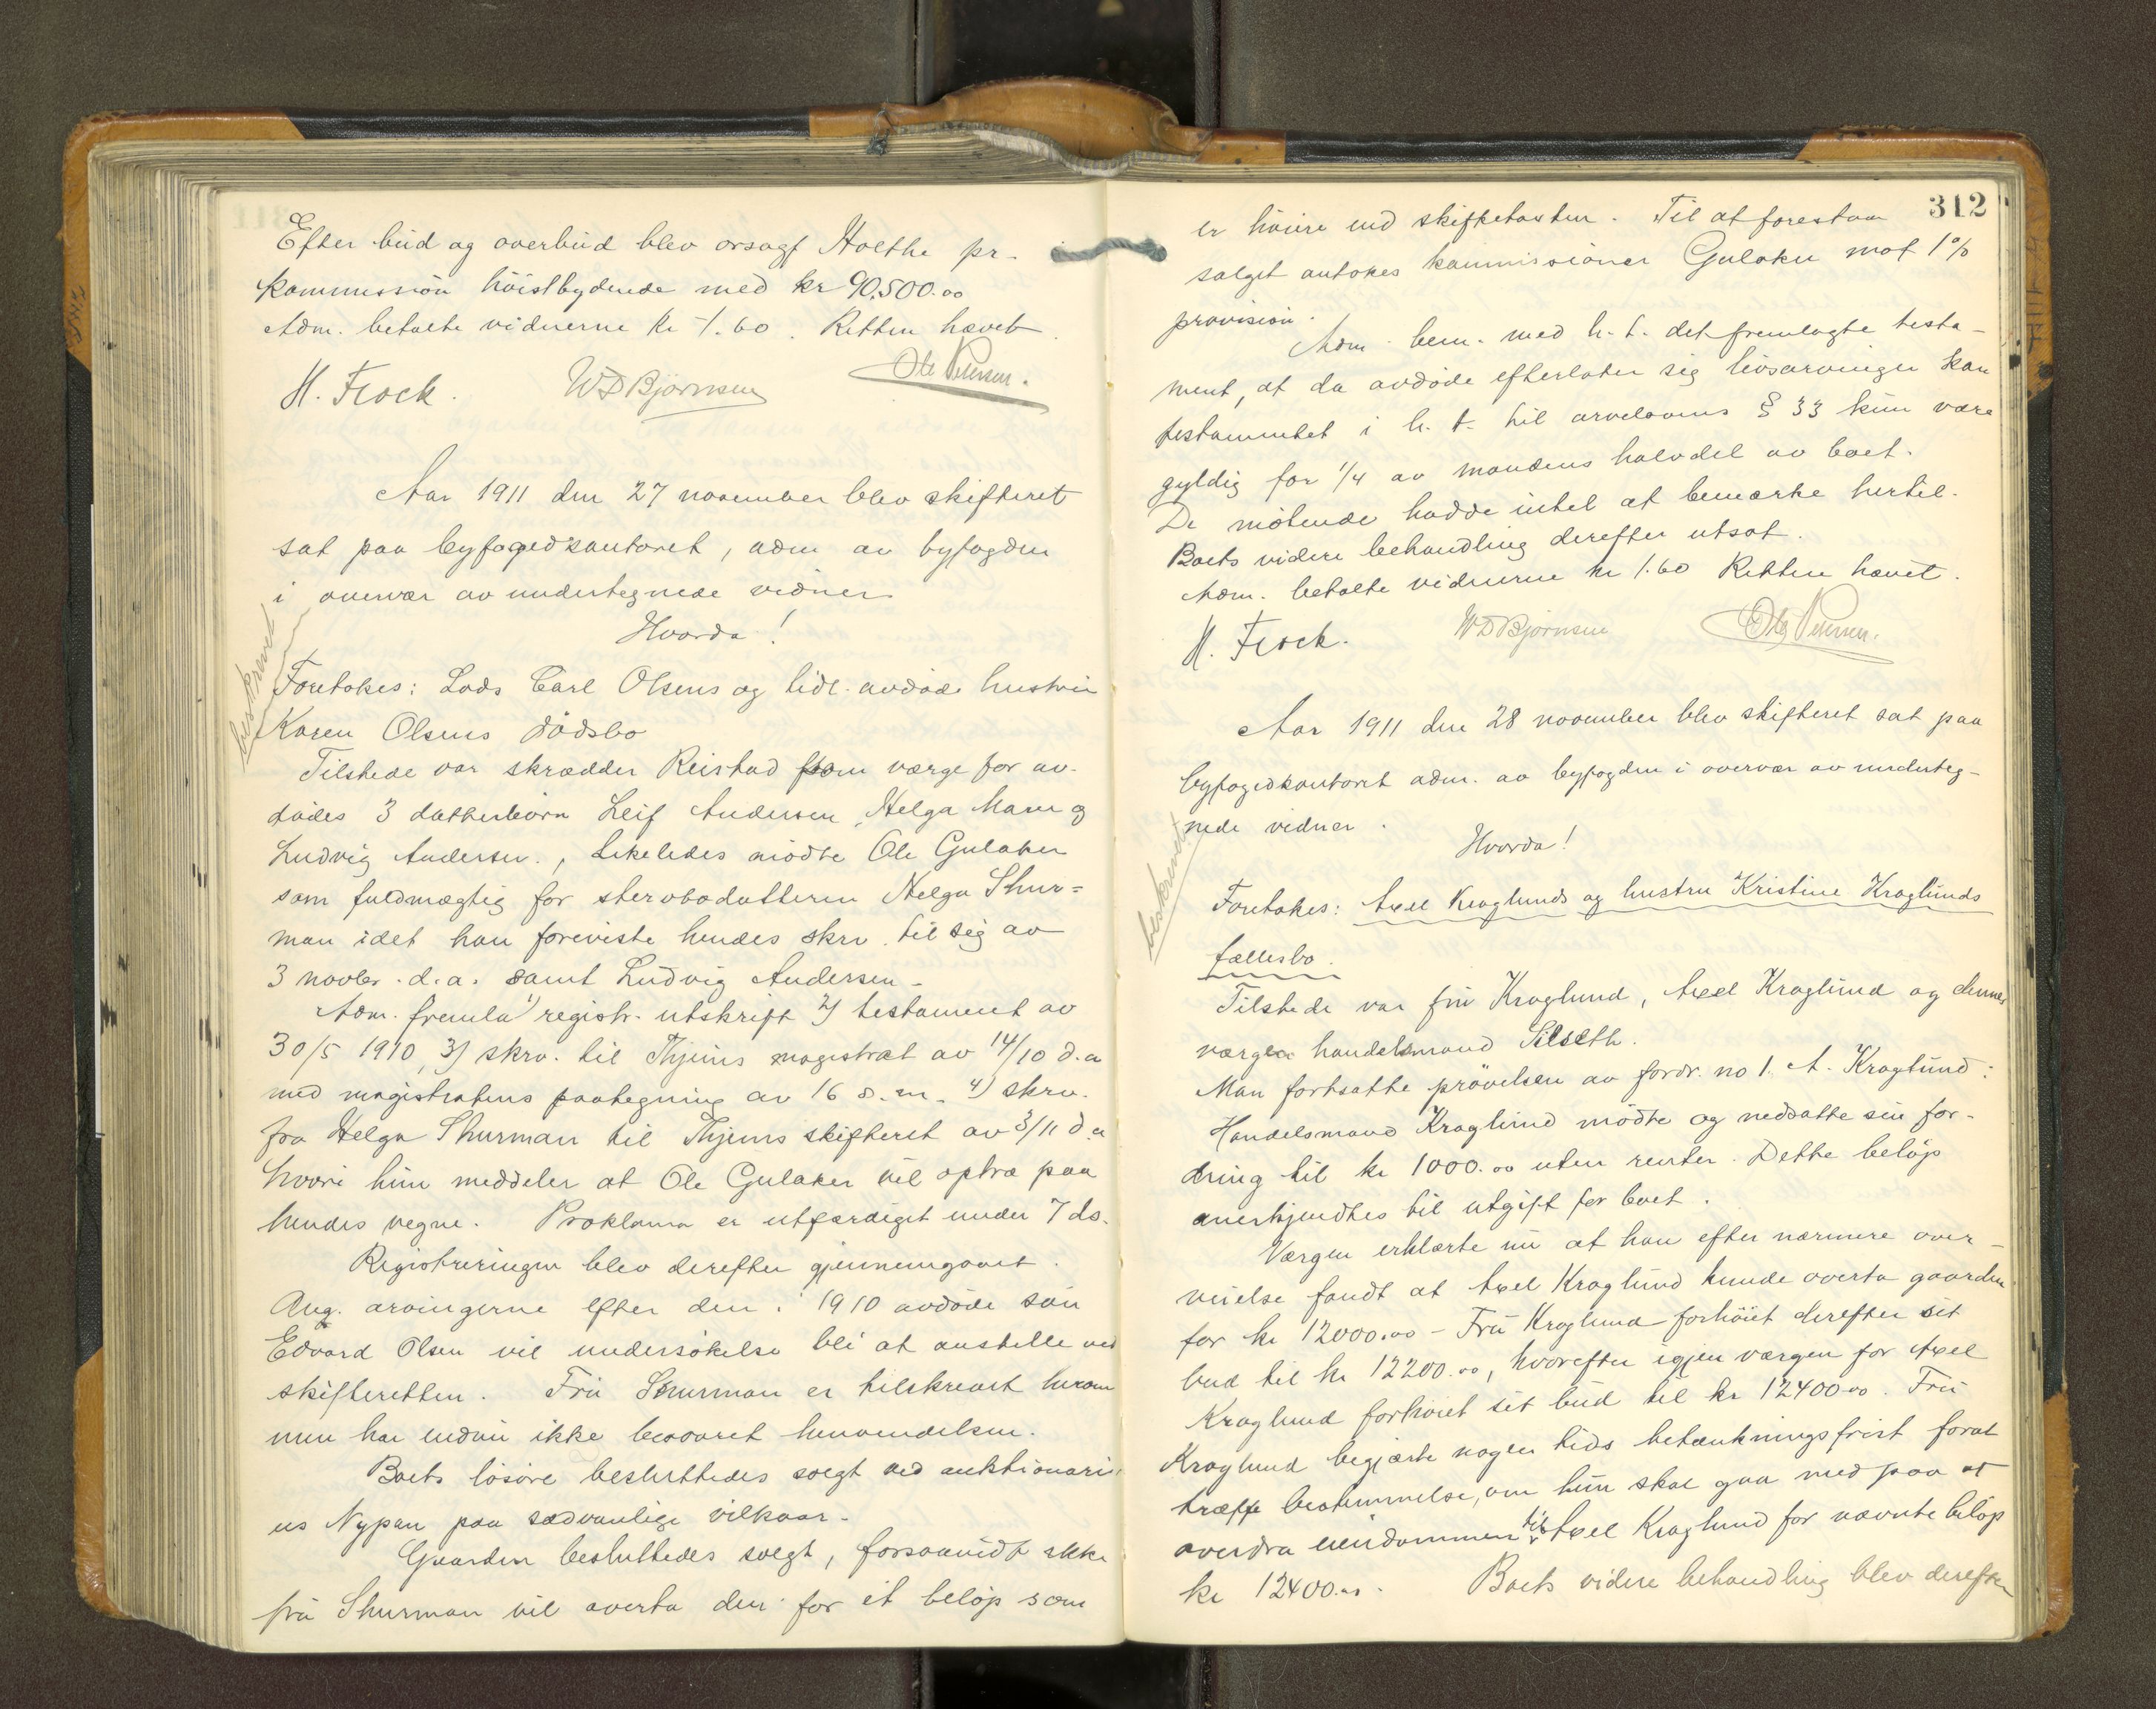 Efter bud og overbud blev orsagf Holthe pr.
kommission höistbydende med kr 90.500.00
Adm. betalte vidnerne kr 1.60. Retten hævet
H. Flock. W D Björnsen Ole Petersen.
Aar 1911 den 27 november blev skifteret
sat paa byfogedkontoret, adm av byfogden
i overvær av undertegnede vidner
Hvorda!
beskrevet
Foretokes: Lods Carl Olsens og tidl. avdøde hustru
Karen Olsens dödsbo
Tilstede var skrædder Reistad som værge for av-
dödes 3 datterbörn Leif Andersen, Helga Marie og
Ludvig Andersen., Likeledes mödte Ole Gulaker
som fuldmægtig for stervbodatteren Helga Shur=
man idet han foreviste hendes skrv. til sig av
3 novbr. d.a. samt Ludvig Andersen -
Adm. fremla 1) registr. utskrift 2) testament av
30/5 1910, 3) skrv. til Thjems magistrat av 14/10 d.a
med magistratens paategning av 16 s.m. 4) skrv.
fra Helga Shurman til Thjems skifteret av 3/11 d.a
hvori hun meddeler at Ole Gulaker vil optræ paa
hendes vegne. Proklama er utfærdiget under 7 ds.
Registreringen blev derefter gjennemgaaet.
Ang. arvingerne efter den i 1910 avdöde sön
Edvard Olsen vil undersökelse bli at anstille ved
skifteretten. Fru Shurman er tilskrevet herom
men har endnu ikke besvaret henvendelsen.
Boets lösöre besluttedes solgt ved auktionari
us Nypan paa sædvanlige vilkaar -
Gaarden besluttedes solgt, forsaavidt ikke
fru Shurman vil overta den for et belöp som
312
er höiere end skiftetaxten. Til at forestaa
salget antokes kommissionær Gulaker mot 1%
provision.
Adm. bem. med h. t. det fremlagte testa-
ment, at da avdöde efterlater sig livsarvinger kan
testamentet i h. t. til arvelovens § 33 kun være
gyldig for 1/4 av mandens halvdel av boet.
De mötende hadde intet at bemærke hertil.
Boets videre behandling derefter utsat.
Adm. betalte vidnerne kr 1.60 Retten hævet.
H. Flock. W D Björnsen Ole Petersen.
Aar 1911 den 28 november blev skifteret sat paa
byfogedkontoret adm. av byfogden i overvær av underteg-
nede vidner.
Hvorda!
beskrevet
Foretokes: Axel Kraglunds og hustru Kristine Kraglunds
fællesbo.
Tilstede var fru Kraglund, Axel Kraglund og dennes
værge handelsmand Silseth.
Man fortsatte prövelsen av fordr. no 1. A. Kraglund:
Handelsmand Kraglund mödte og nedsatte sin for-
dring til kr 1000.00 uten renter. Dette belöp
anerkjendtes til utgift for boet.
Værgen erklærte nu at han efter nærmere over-
veielse fandt at Axel Kraglund kunde overta gaarden
for kr 12000.00 - Fru Kraglund forhöiet derefter sit
bud til kr 12200.00, hvorefter igjen værgen for Axel
Kraglund forhöiet sit bud til kr 12400.00. Fru
Kraglund begjærte nogen tids betænkningsfrist forat
træffe bestemmelse, om hun skal gaa med paa at
overdra eiendommen til Axel Kraglund for nævnte belöp
kr 12400.00. Boets videre behandling blev derefter